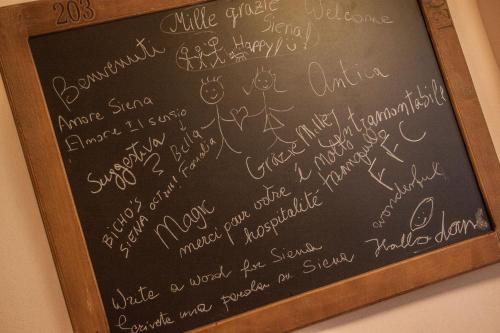 203
Mille grazie Siena!
Welcome
Benvenuti
Happy!
Antica
Amore Siena
Bella
Suggestiva
Grazie Mille
Intramontabile
è molto tranquilla
F F C
BICHO'S
SIENA
Magic
merci pour votre hospitalité
wonderful
Hallo
Write a word for Siena
Scrivete una parola su Siena